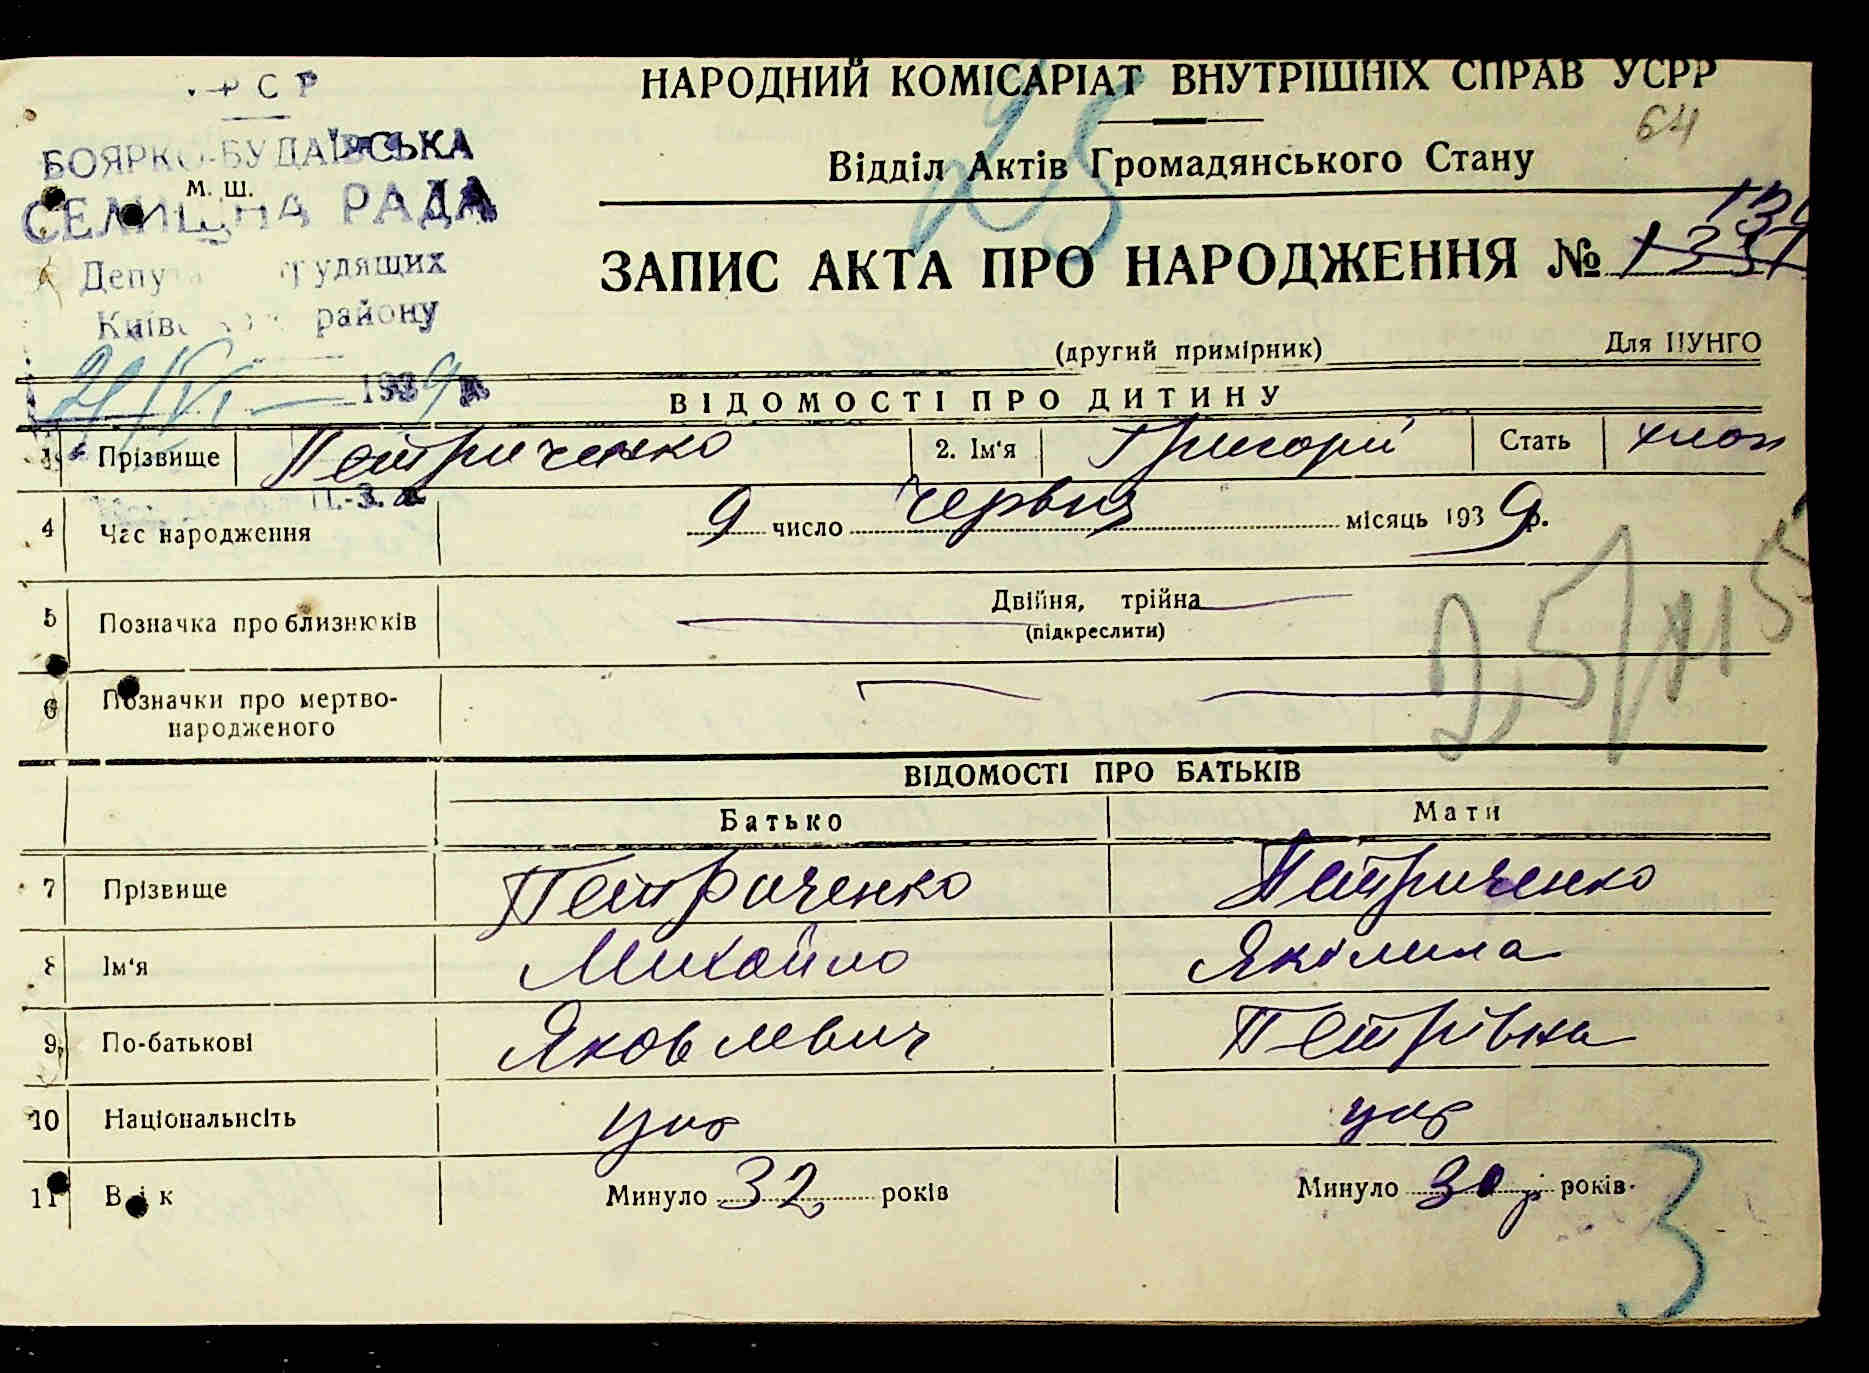 РСР
БОЯРКО-БУДАЇВСЬКА
м. ш.
СЕЛИЩНА РАДА
Депу трудящих
Київ району
21/VI — 1939 р
НАРОДНИЙ КОМІСАРІАТ ВНУТРІШНІХ СПРАВ УСРР
25
64
Відділ Актів Громадянського Стану
ЗАПИС АКТА ПРО НАРОДЖЕННЯ №
(другий примірник)
Для ЦУНГО
ВІДОМОСТІ ПРО ДИТИНУ
Прізвище Петриченко 2. Ім'я Григорій Стать хлоп
4 Час народження 9 число червня місяць 1939 р.
5 Позначка про близнюків Двійня, трійна
(підкреслити)
6 Позначки про мертво-
народженого
ВІДОМОСТІ ПРО БАТЬКІВ
Батько Мати
7 Прізвище Петриченко Петриченко
8 Ім'я Михайло Якілина
9 По-батькові Яковлевич Петрівна
10 Національнсіть укр укр
11 Вік Минуло 32 років Минуло 30 років
3